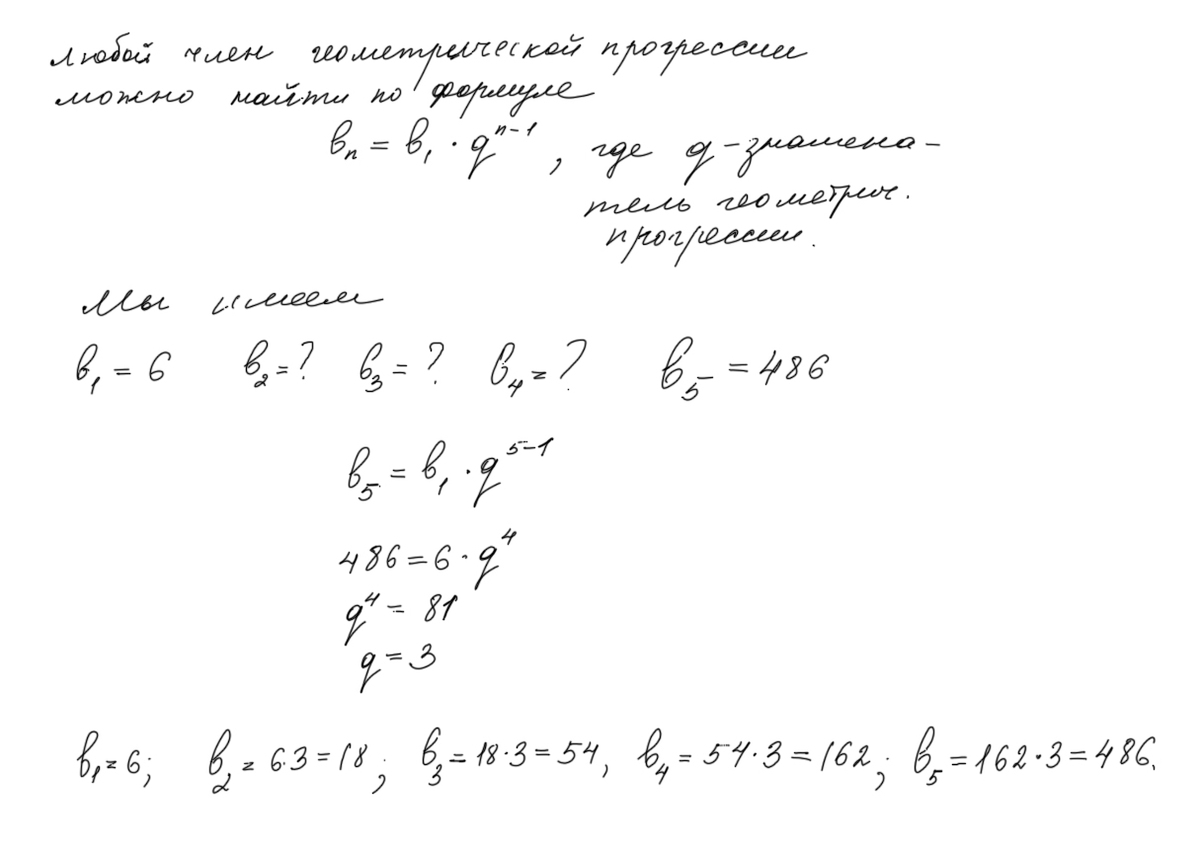 любой член геометрической прогрессии
можно найти по формуле
bₙ = b₁ · qⁿ⁻¹, где q - знамена-
тель геометрич.
прогрессии.
Мы имеем
b₁ = 6 b₂ = ? b₃ = ? b₄ = ? b₅ = 486
b₅ = b₁ · q⁵⁻¹
486 = 6 · q⁴
q⁴ = 81
q = 3
b₁ = 6; b₂ = 6·3 = 18; b₃ = 18·3 = 54, b₄ = 54·3 = 162; b₅ = 162·3 = 486.